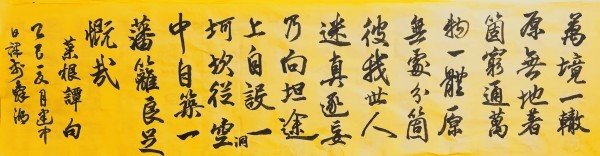 萬境一轍
原無地著
箇窮通萬
物一體原
無處分箇
彼我世人
迷真逐妄
乃向坦途
上自設一
坷坎從空洞
中自築一
藩籬良足
慨哉
菜根譚句
乙巳月建中
日課